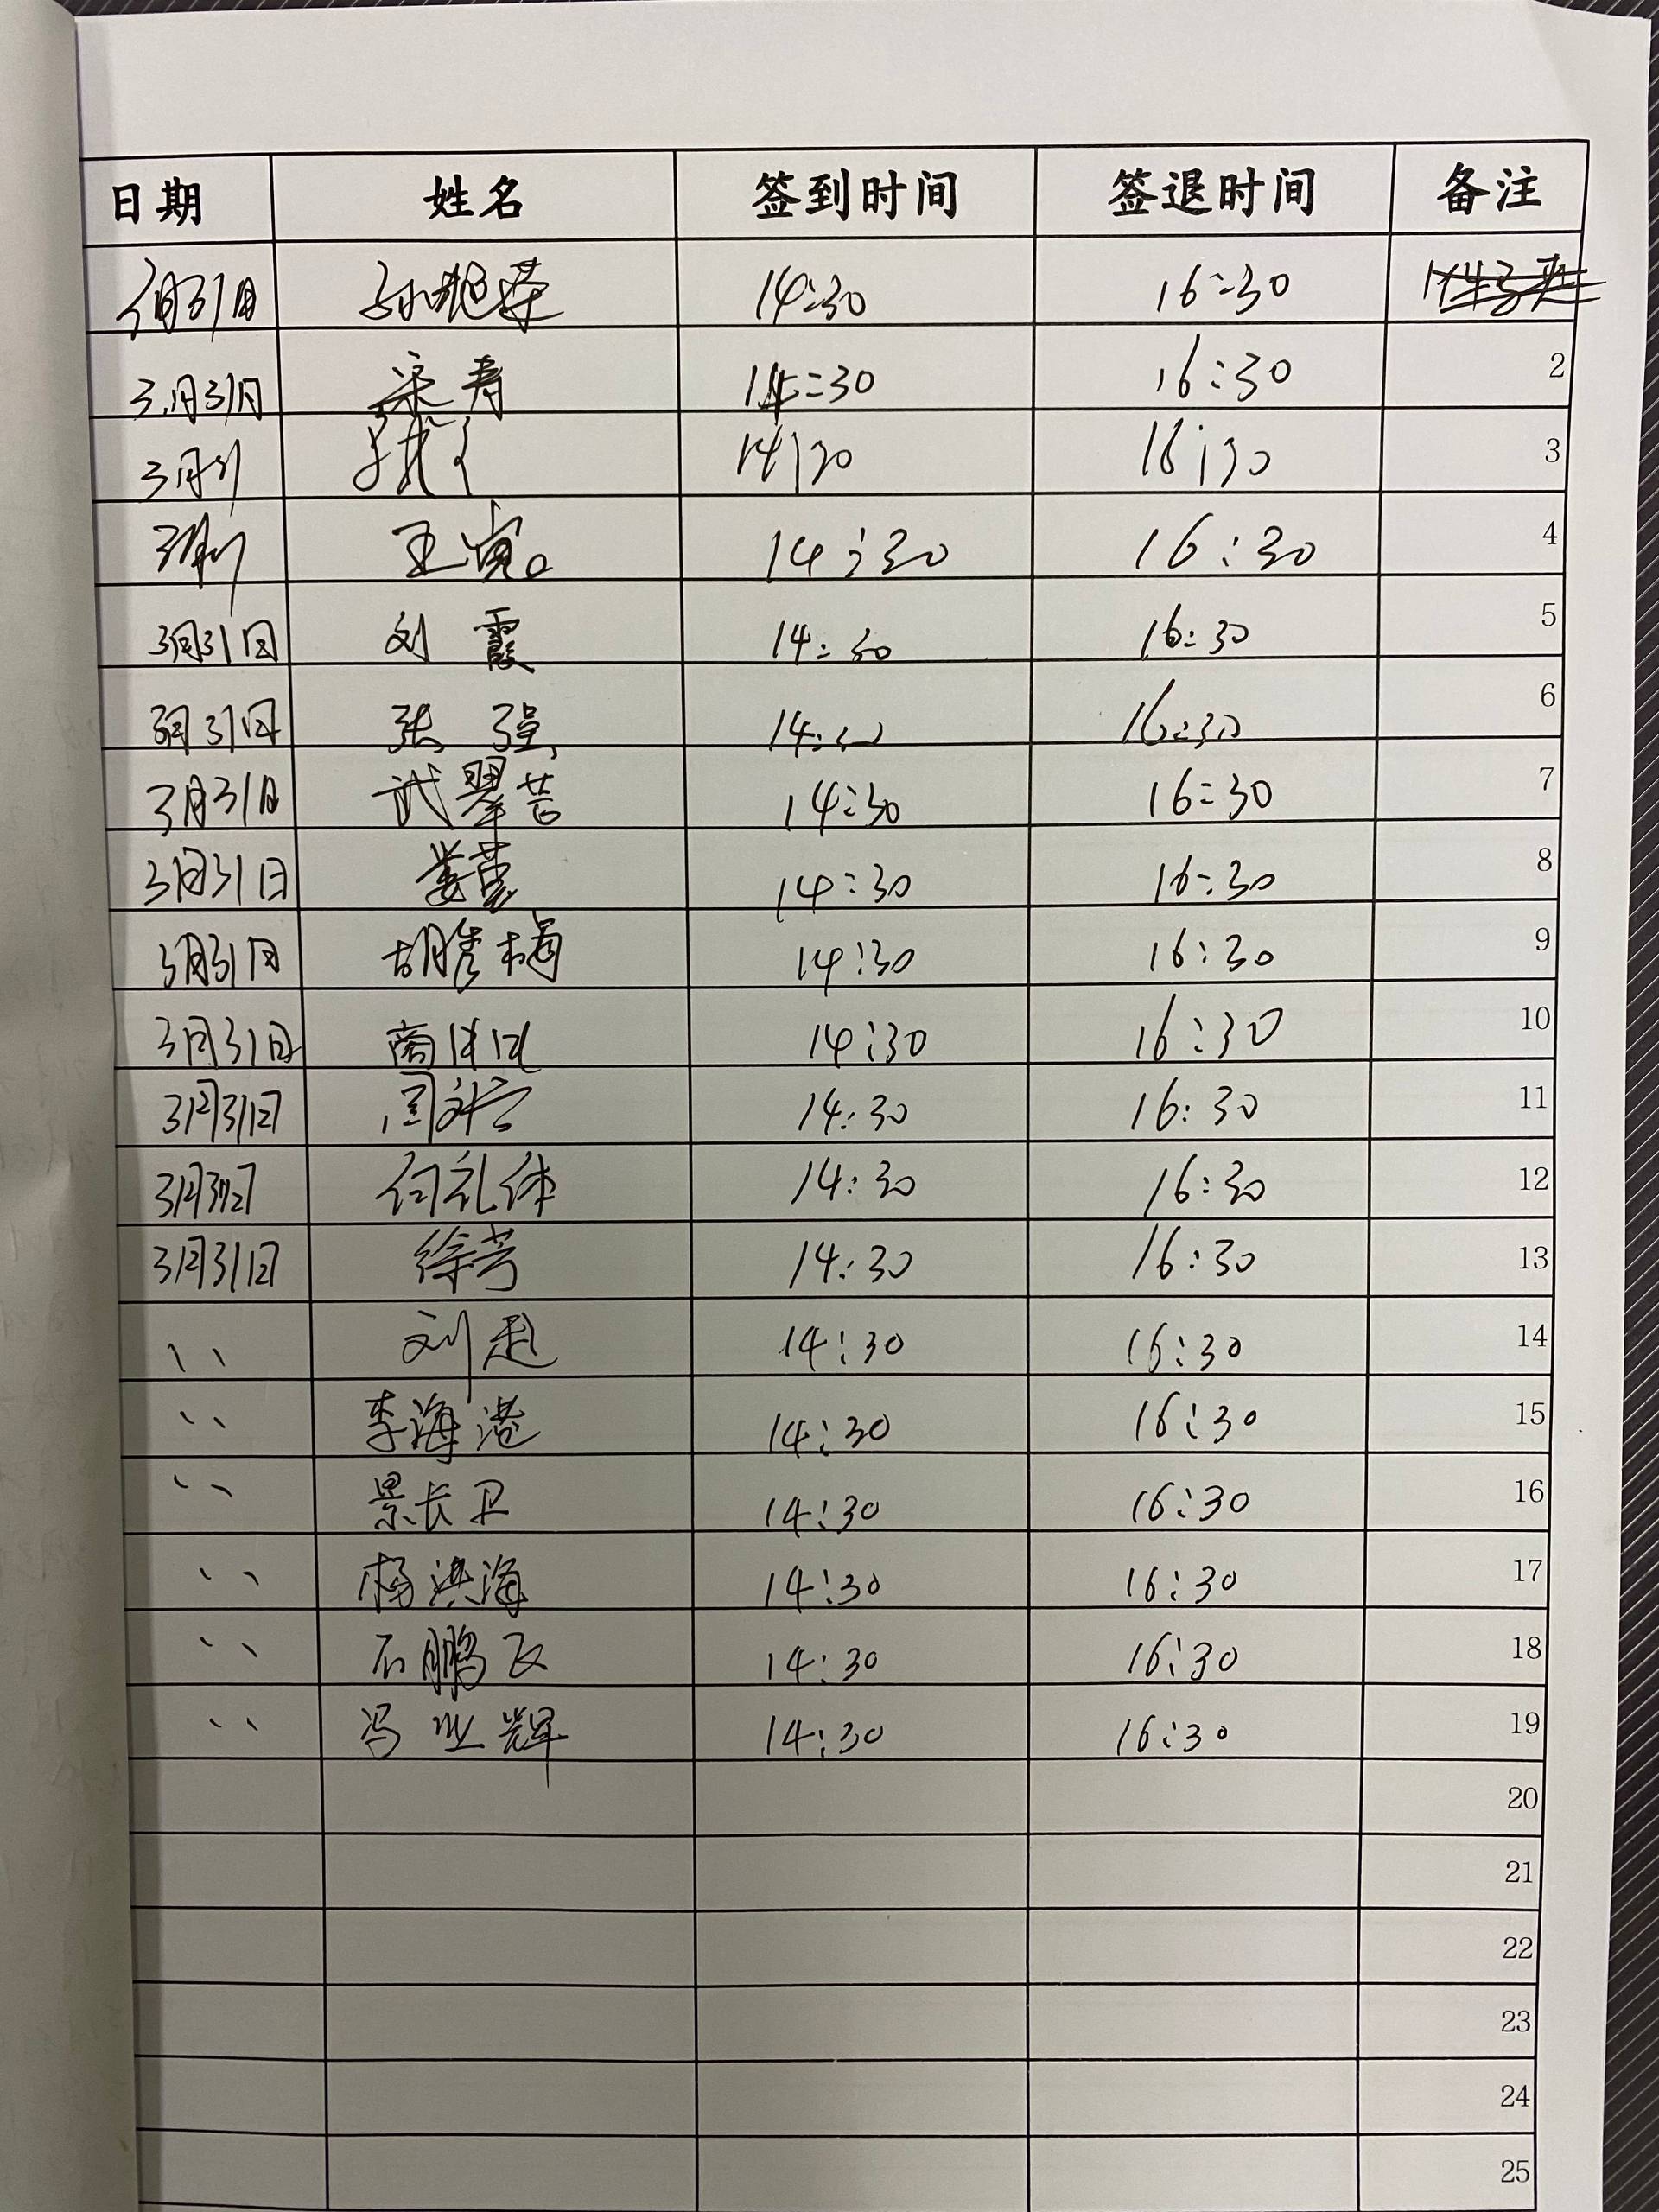 日期 姓名 签到时间 签退时间 备注
3月31日 14:30 16:30
3月31日 梁寿 14:30 16:30 2
3月31 14:30 16:30 3
3月31 王 14:30 16:30 4
3月31日 刘霞 14:30 16:30 5
3月31日 张强 14:30 16:30 6
3月31日 武翠芸 14:30 16:30 7
3月31日 14:30 16:30 8
3月31日 胡秀梅 14:30 16:30 9
3月31日 商 14:30 16:30 10
3月31日 周 14:30 16:30 11
3月31日 何礼伟 14:30 16:30 12
3月31日 徐芳 14:30 16:30 13
、、 刘赳 14:30 16:30 14
、、 李海港 14:30 16:30 15
、、 景长卫 14:30 16:30 16
、、 杨洪海 14:30 16:30 17
、、 石鹏飞 14:30 16:30 18
、、 冯业辉 14:30 16:30 19
20
21
22
23
24
25